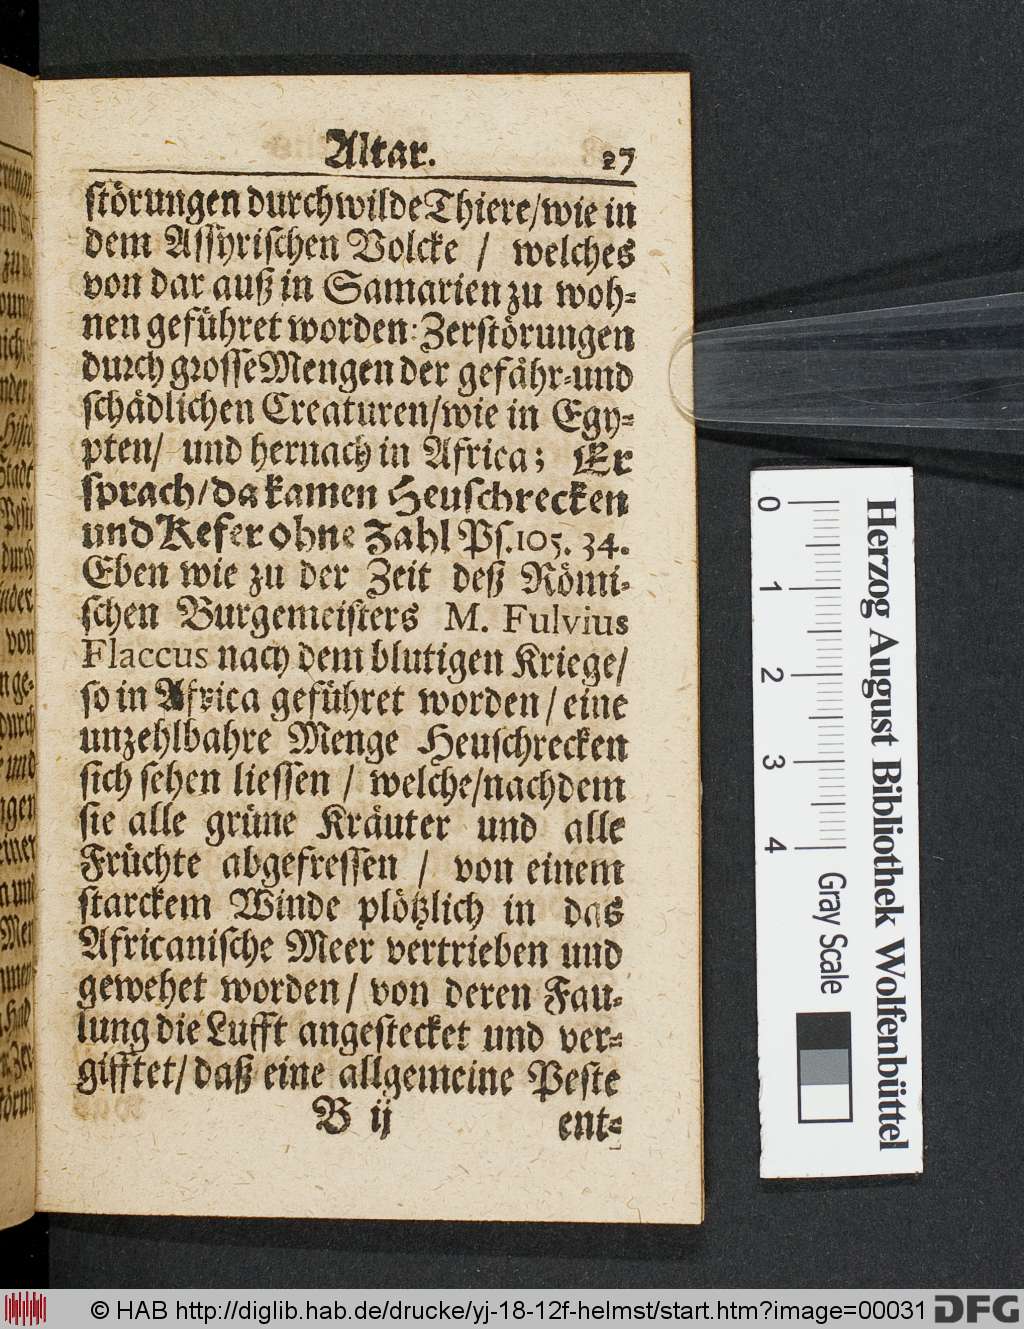 Altar. 27
störungen durch wilde Thiere/wie in
dem Assyrischen Volcke / welches
von dar auß in Samarien zu woh-
nen geführet worden: Zerstörungen
durch grosse Mengen der gefähr-und
schädlichen Creaturen/wie in Egy-
pten/ und hernach in Africa; Er
sprach/da kamen Heuschrecken
und Kefer ohne Zahl Ps.105. 34.
Eben wie zu der Zeit deß Römi-
schen Burgemeisters M. Fulvius
Flaccus nach dem blutigen Kriege/
so in Africa geführet worden / eine
unzehlbahre Menge Heuschrecken
sich sehen liessen / welche/nachdem
sie alle grüne Kräuter und alle
Früchte abgefressen / von einem
starckem Winde plötzlich in das
Africanische Meer vertrieben und
gewehet worden / von deren Fau-
lung die Lufft angestecket und ver-
gifftet/ daß eine allgemeine Peste
B ij ent-
Herzog August Bibliothek Wolfenbüttel
0 1 2 3 4 Gray Scale
© HAB http://diglib.hab.de/drucke/yj-18-12f-helmst/start.htm?image=00031 DFG